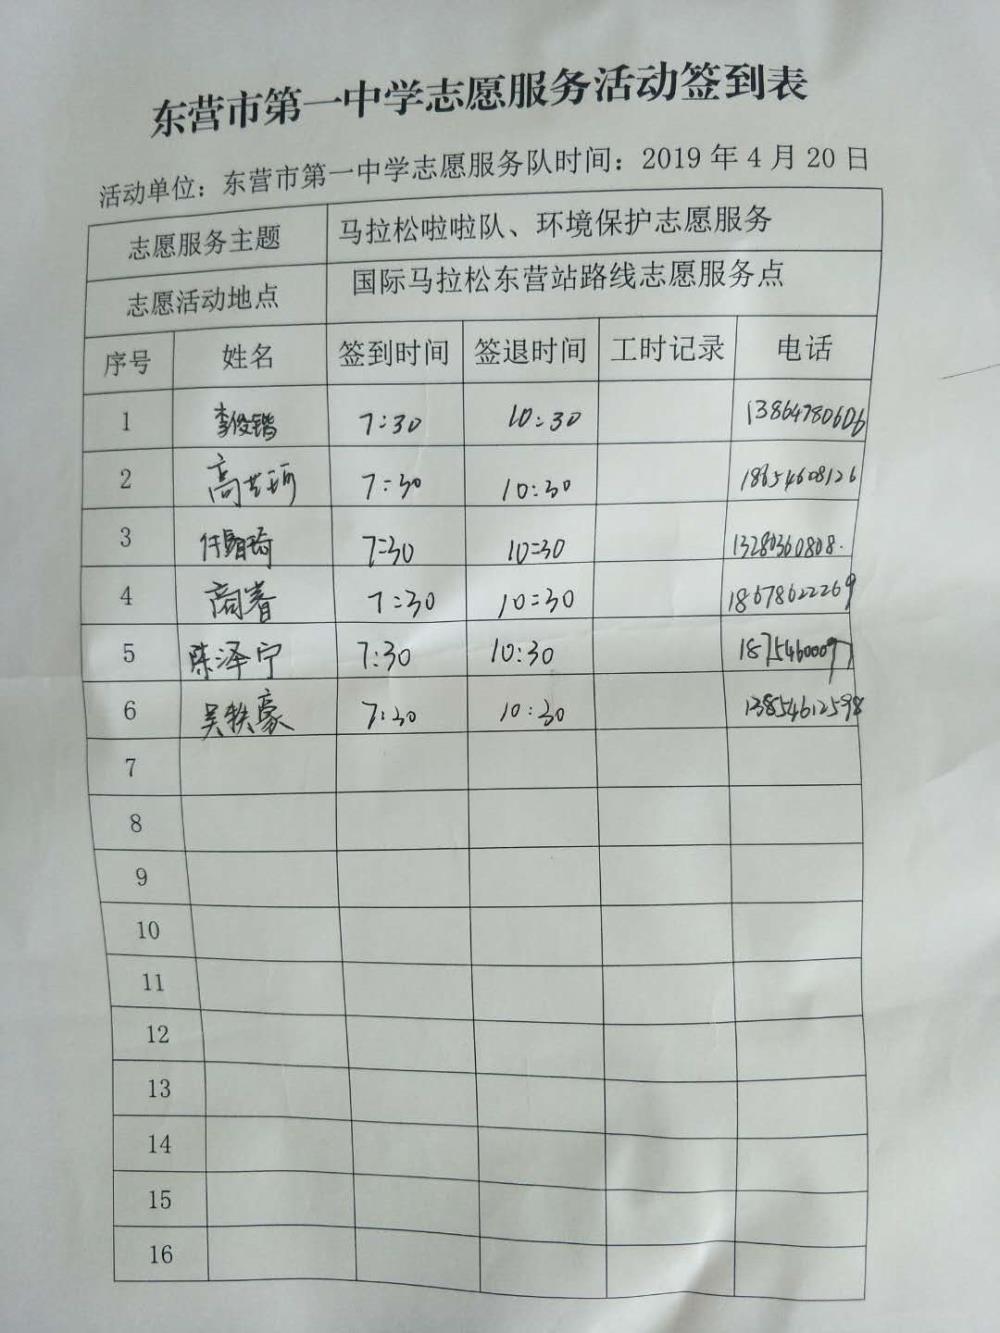 东营市第一中学志愿服务活动签到表
活动单位：东营市第一中学志愿服务队时间：2019 年 4 月 20 日
志愿服务主题 马拉松啦啦队、环境保护志愿服务
志愿活动地点 国际马拉松东营站路线志愿服务点
序号 姓名 签到时间 签退时间 工时记录 电话
1 李俊锴 7:30 10:30 13864780606
2 高艺珂 7:30 10:30 18654608126
3 7:30 10:30 13280360808.
4 7:30 10:30 18678622269
5 陈泽宁 7:30 10:30
6 吴轶豪 7:30 10:30 13854612598
7
8
9
10
11
12
13
14
15
16